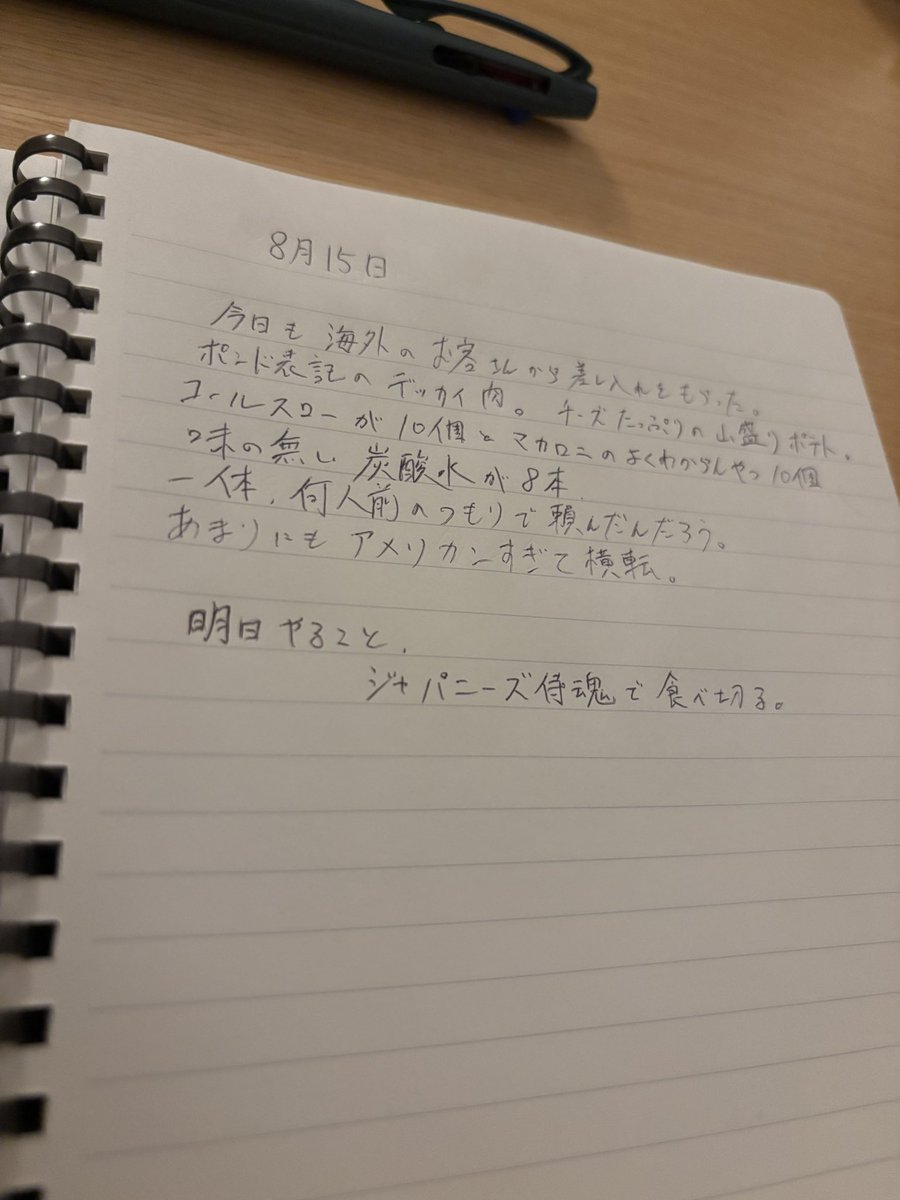 8月15日
今日も海外のお客さんから差し入れをもらった。
ポンド表記のデッカイ肉。チーズたっぷりの山盛りポテト。
コールスローが10個とマカロニのよくわからんやつ10個
味の無い炭酸水が8本.
一体、何人前のつもりで頼んだんだろう。
あまりにもアメリカンすぎて横転。
明日やること.
ジャパニーズ侍魂で食べ切る。